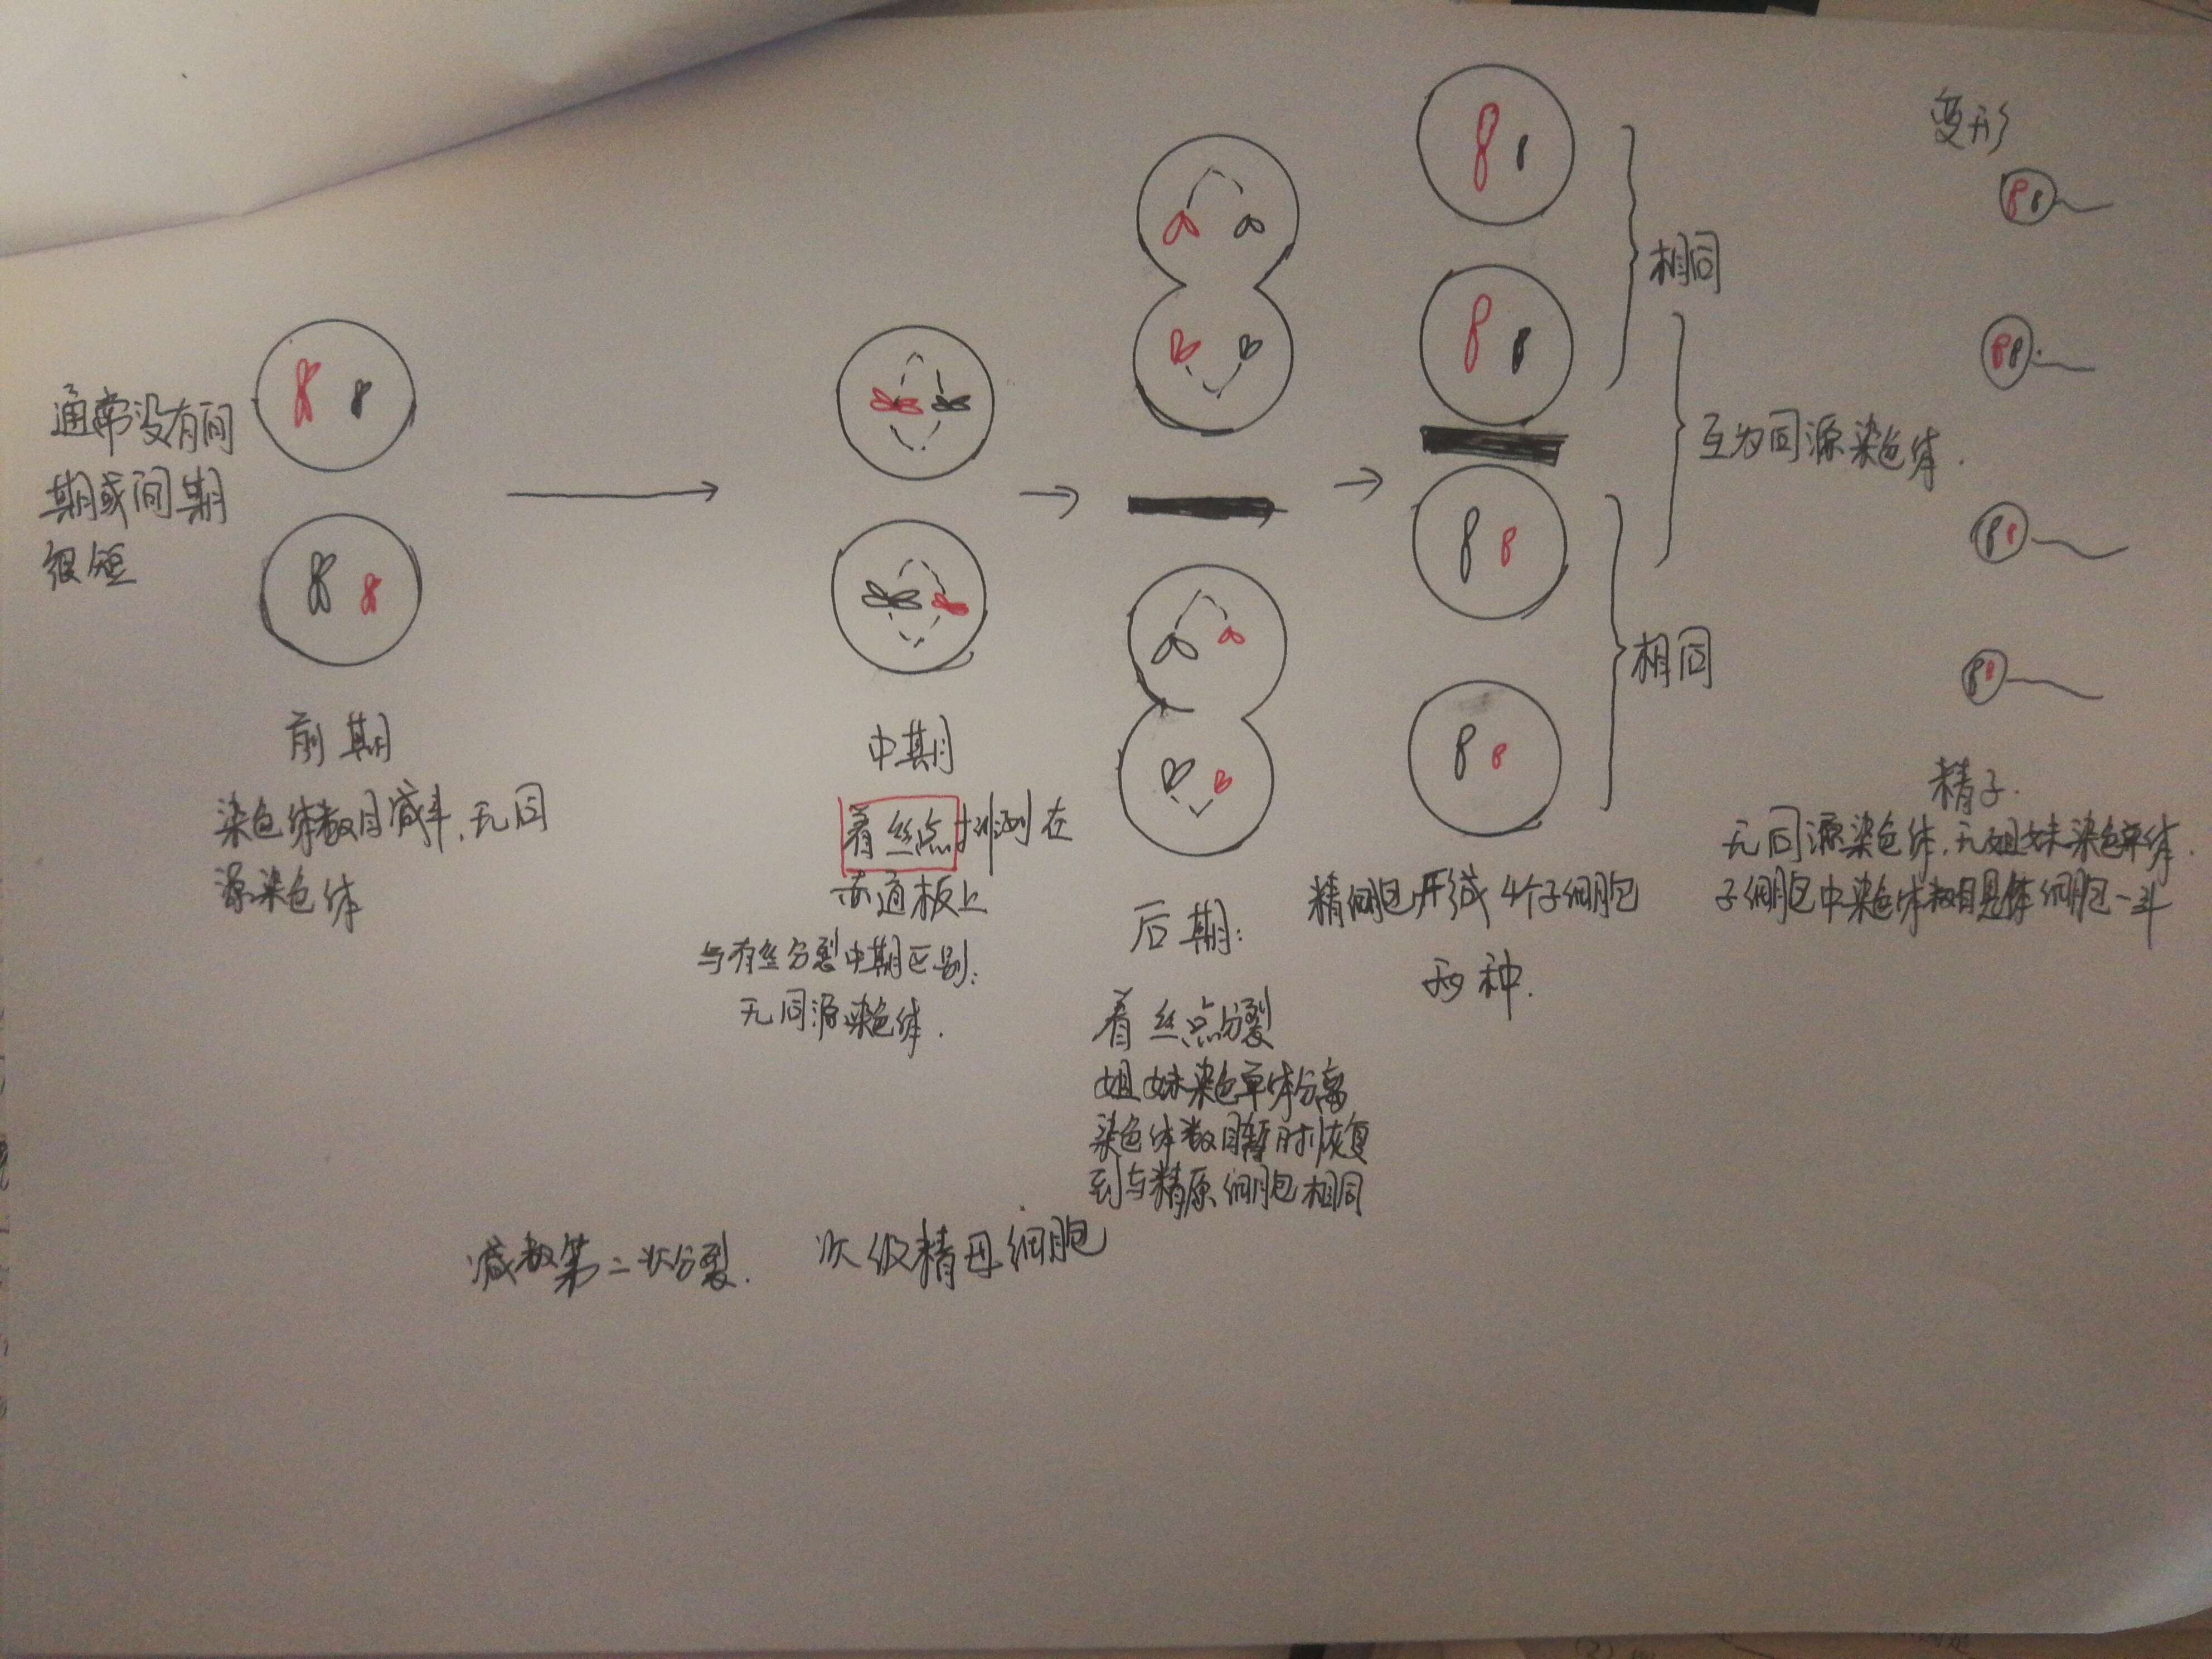 通常没有间
期或间期
很短
前期
染色体数目减半,无同
源染色体
中期
着丝点排列在
赤道板上
与有丝分裂中期区别:
无同源染色体.
后期:
着丝点分裂
姐妹染色单体分离
染色体数目暂时恢复
到与精原细胞相同
相同
互为同源染色体.
相同
精细胞形成4个子细胞
两种.
变形
精子.
无同源染色体,无姐妹染色单体.
子细胞中染色体数目是体细胞一半
减数第二次分裂. 次级精母细胞